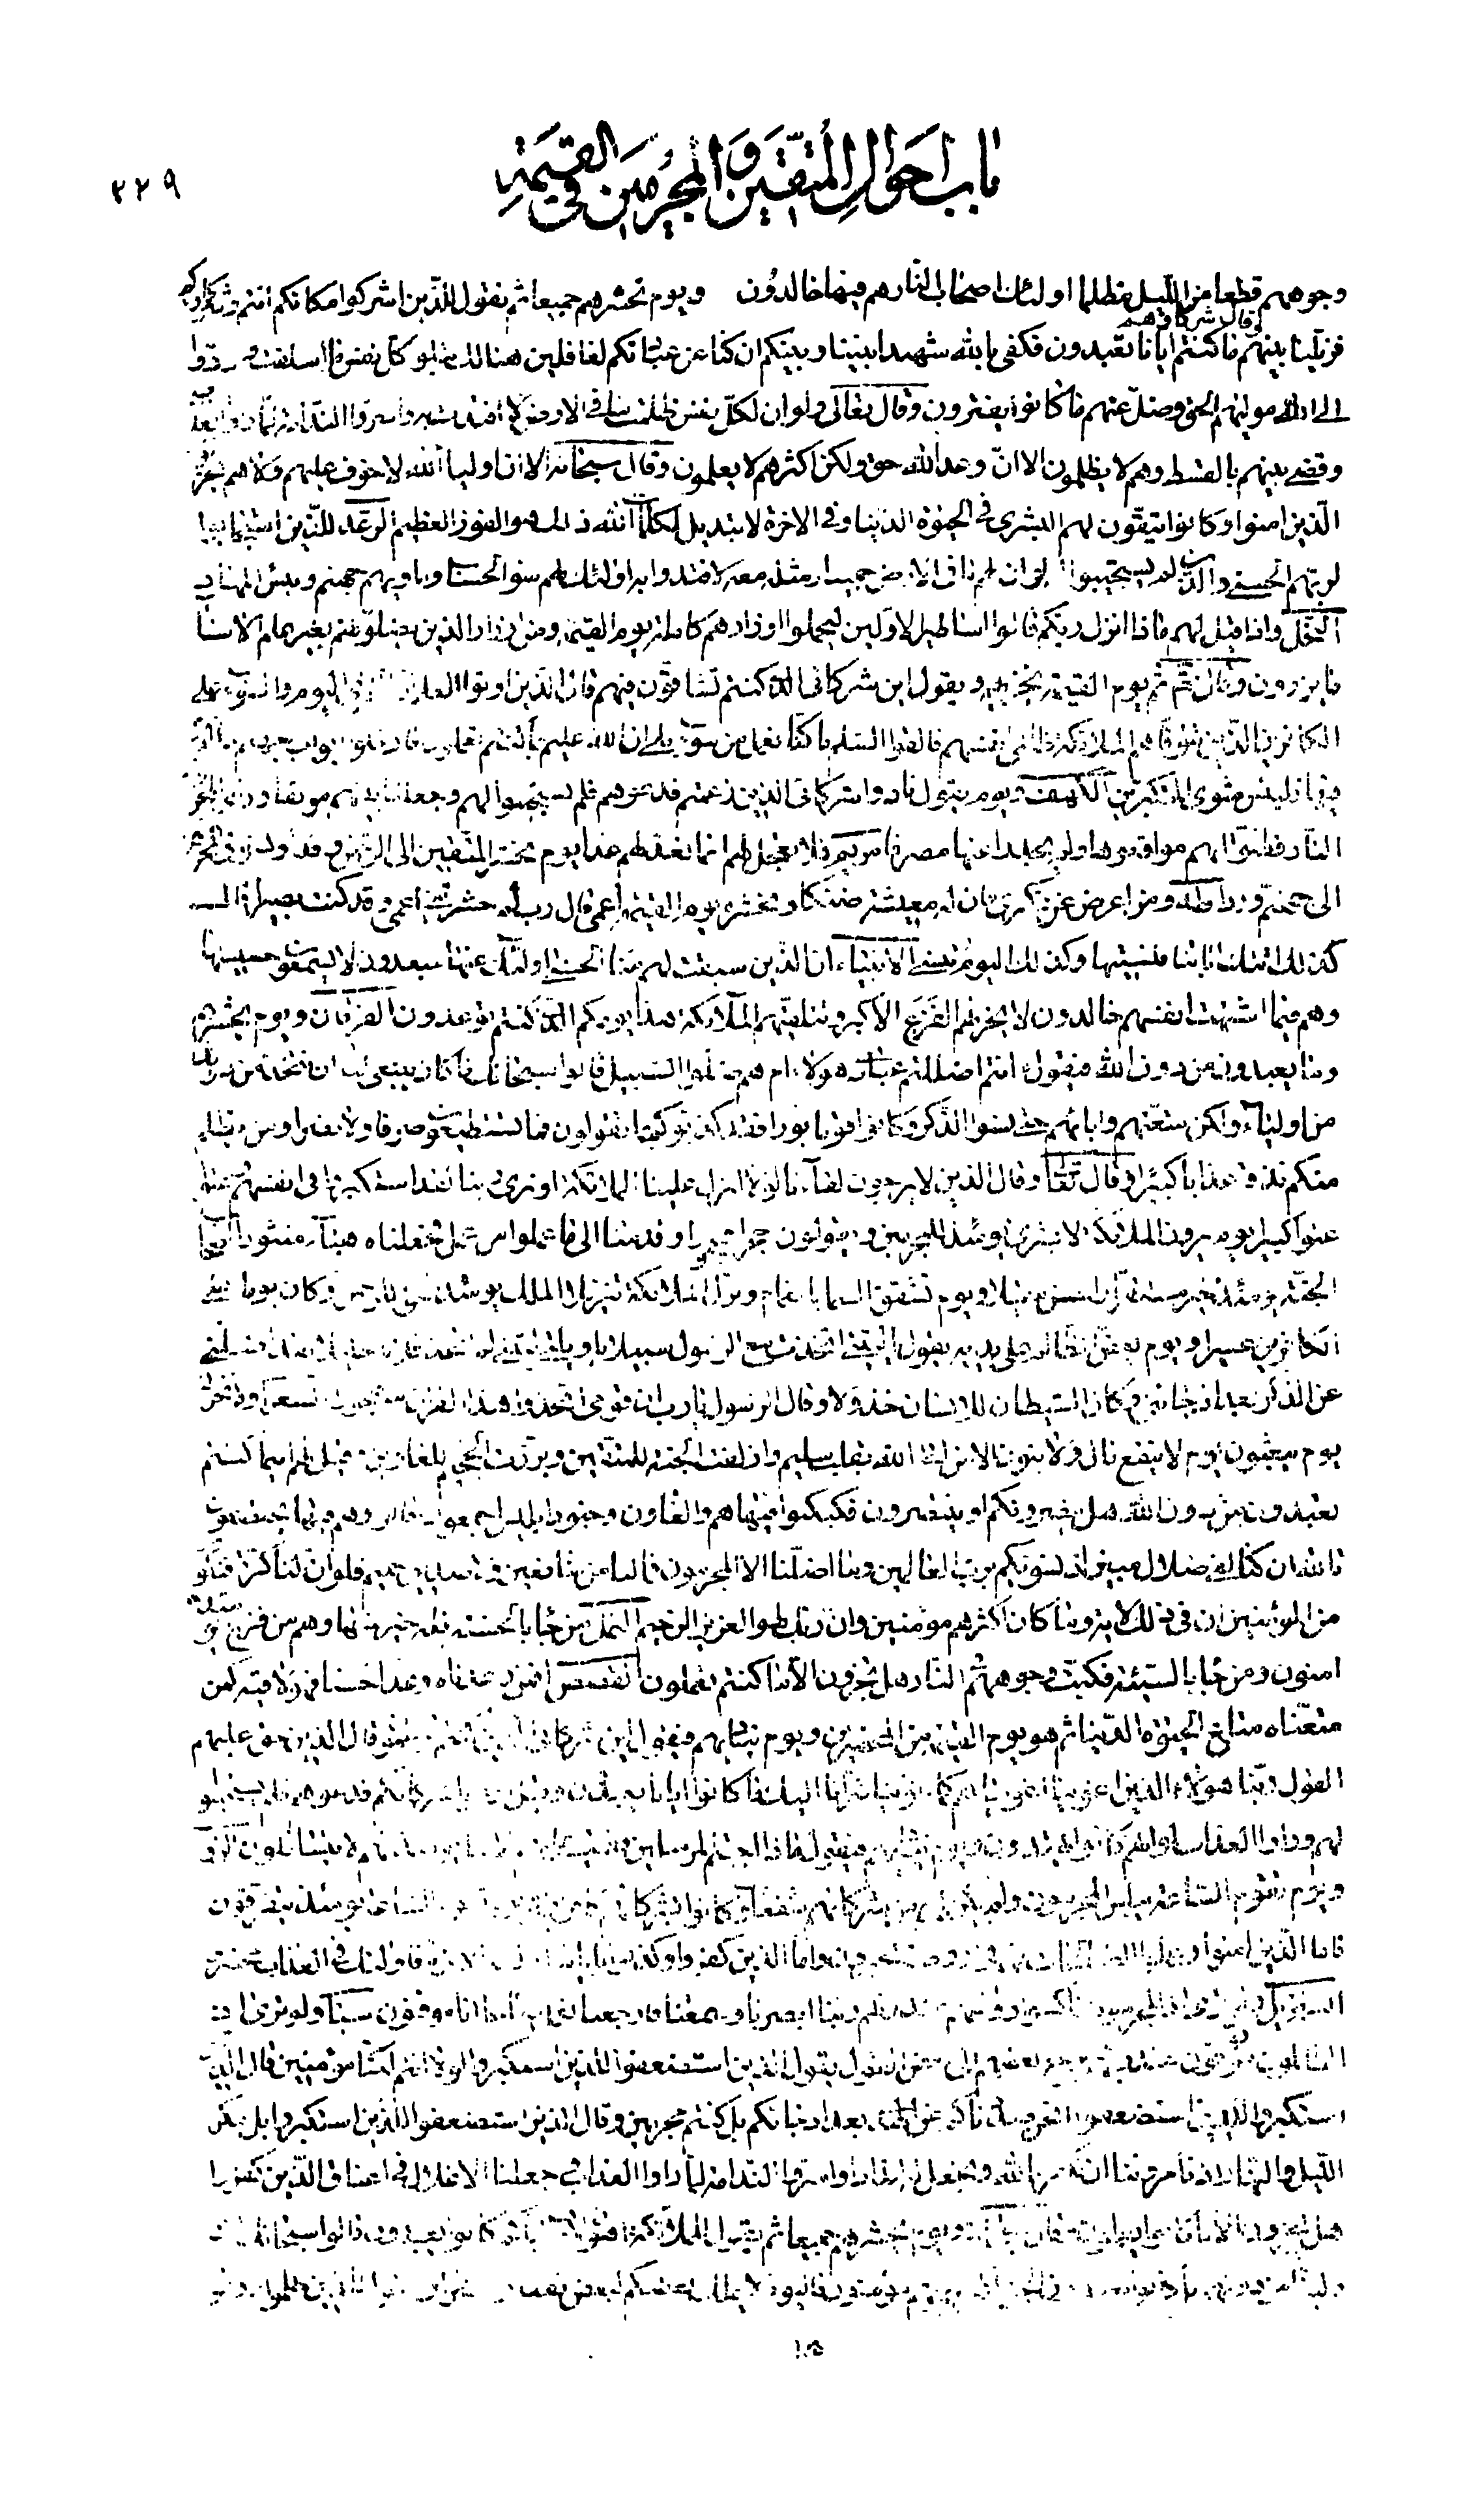 باب احوال المتقین و المجرمین فی القیمة
۲۲۹
وجوههم قطعا من اللیل مظلما اولئك اصحاب النار هم فیها خالدون ویوم نحشرهم جمیعا ثم نقول للذین اشرکوا مکانکم انتم وشرکاؤکم
فزیلنا بینهم وقال شرکاؤهم ما کنتم ایانا تعبدون فکفی بالله شهیدا بیننا وبینکم ان کنا عن عبادتکم لغافلین هنالك تبلو کل نفس ما اسلفت وردوا
الی الله مولیهم الحق وضل عنهم ما کانوا یفترون وقال تعالی ولو ان لکل نفس ظلمت ما فی الارض لافتدت به واسروا الندامة لما راوا العذاب
وقضی بینهم بالقسط وهم لا یظلمون الا ان وعد الله حق ولکن اکثرهم لا یعلمون وقال سبحانه الا ان اولیاء الله لا خوف علیهم ولا هم یحزنون
الذین امنوا وکانوا یتقون لهم البشری فی الحیوة الدنیا وفی الاخرة لا تبدیل لکلمات الله ذلك هو الفوز العظیم الرعد للذین استجابوا
لربهم الحسنی والذین لم یستجیبوا له لو ان لهم ما فی الارض جمیعا ومثله معه لافتدوا به اولئك لهم سوء الحساب وماویهم جهنم وبئس المهاد
النحل واذا قیل لهم ماذا انزل ربکم قالوا اساطیر الاولین لیحملوا اوزارهم کاملة یوم القیمة ومن اوزار الذین یضلونهم بغیر علم الا ساء
ما یزرون وقال ثم یوم القیمة یخزیهم ویقول این شرکائی الذین کنتم تشاقون فیهم قال الذین اوتوا العلم ان الخزی الیوم والسوء علی
الکافرین الذین تتوفاهم الملائکة ظالمی انفسهم فالقوا السلم ما کنا نعمل من سوء بلی ان الله علیم بما کنتم تعملون فادخلوا ابواب جهنم خالدین
فیها فلبئس مثوی المتکبرین الکهف ویوم یقول نادوا شرکائی الذین زعمتم فدعوهم فلم یستجیبوا لهم وجعلنا بینهم موبقا ورای المجرمون
النار فظنوا انهم مواقعوها ولم یجدوا عنها مصرفا مریم فلا تعجل علیهم انما نعد لهم عدا یوم نحشر المتقین الی الرحمن وفدا ونسوق المجرمین
الی جهنم وردا طه ومن اعرض عن ذکری فان له معیشة ضنکا ونحشره یوم القیمة اعمی قال رب لم حشرتنی اعمی وقد کنت بصیرا قال
کذلك اتتك ایاتنا فنسیتها وکذلك الیوم تنسی الانبیاء ان الذین سبقت لهم منا الحسنی اولئك عنها مبعدون لا یسمعون حسیسها
وهم فیما اشتهت انفسهم خالدون لا یحزنهم الفزع الاکبر وتتلقیهم الملائکة هذا یومکم الذی کنتم توعدون الفرقان ویوم یحشرهم
وما یعبدون من دون الله فیقول ءانتم اضللتم عبادی هؤلاء ام هم ضلوا السبیل قالوا سبحانك ما کان ینبغی لنا ان نتخذ من دونك
من اولیاء ولکن متعتهم واباءهم حتی نسوا الذکر وکانوا قوما بورا فقد کذبوکم بما تقولون فما تستطیعون صرفا ولا نصرا ومن یظلم
منکم نذقه عذابا کبیرا وقال تعالی وقال الذین لا یرجون لقاءنا لولا انزل علینا الملائکة او نری ربنا لقد استکبروا فی انفسهم وعتوا
عتوا کبیرا یوم یرون الملائکة لا بشری یومئذ للمجرمین ویقولون حجرا محجورا وقدمنا الی ما عملوا من عمل فجعلناه هباء منثورا اصحاب
الجنة یومئذ خیر مستقرا واحسن مقیلا ویوم تشقق السماء بالغمام ونزل الملائکة تنزیلا الملك یومئذ الحق للرحمن وکان یوما علی
الکافرین عسیرا ویوم یعض الظالم علی یدیه یقول یا لیتنی اتخذت مع الرسول سبیلا یا ویلتی لیتنی لم اتخذ فلانا خلیلا لقد اضلنی
عن الذکر بعد اذ جاءنی وکان الشیطان للانسان خذولا وقال الرسول یا رب ان قومی اتخذوا هذا القران مهجورا الشعراء ولا تخزنی
یوم یبعثون یوم لا ینفع مال ولا بنون الا من اتی الله بقلب سلیم وازلفت الجنة للمتقین وبرزت الجحیم للغاوین وقیل لهم اینما کنتم
تعبدون من دون الله هل ینصرونکم او ینتصرون فکبکبوا فیها هم والغاون وجنود ابلیس اجمعون قالوا وهم فیها یختصمون
تالله ان کنا لفی ضلال مبین اذ نسویکم برب العالمین وما اضلنا الا المجرمون فما لنا من شافعین ولا صدیق حمیم فلو ان لنا کرة فنکون
من المؤمنین ان فی ذلك لایة وما کان اکثرهم مؤمنین وان ربك لهو العزیز الرحیم النمل من جاء بالحسنة فله خیر منها وهم من فزع یومئذ
امنون ومن جاء بالسیئة فکبت وجوههم فی النار هل تجزون الا ما کنتم تعملون القصص افمن وعدناه وعدا حسنا فهو لاقیه کمن
متعناه متاع الحیوة الدنیا ثم هو یوم القیمة من المحضرین ویوم ینادیهم فیقول این شرکائی الذین کنتم تزعمون قال الذین حق علیهم
القول ربنا هؤلاء الذین اغوینا اغویناهم کما غوینا تبرانا الیك ما کانوا ایانا یعبدون وقیل ادعوا شرکاءکم فدعوهم فلم یستجیبوا
لهم وراوا العذاب لو انهم کانوا یهتدون ویوم ینادیهم فیقول ماذا اجبتم المرسلین فعمیت علیهم الانباء یومئذ فهم لا یتساءلون الروم
ویوم تقوم الساعة یبلس المجرمون ولم یکن لهم من شرکائهم شفعاء وکانوا بشرکائهم کافرین ویوم تقوم الساعة یومئذ یتفرقون
فاما الذین امنوا وعملوا الصالحات فهم فی روضة یحبرون واما الذین کفروا وکذبوا بایاتنا ولقاء الاخرة فاولئك فی العذاب محضرون
التنزیل ولو تری اذ المجرمون ناکسوا رؤسهم عند ربهم ربنا ابصرنا وسمعنا فارجعنا نعمل صالحا انا موقنون سبا ولو تری اذ
الظالمون موقوفون عند ربهم یرجع بعضهم الی بعض القول یقول الذین استضعفوا للذین استکبروا لولا انتم لکنا مؤمنین قال الذین
استکبروا للذین استضعفوا انحن صددناکم عن الهدی بعد اذ جاءکم بل کنتم مجرمین وقال الذین استضعفوا للذین استکبروا بل مکر
اللیل والنهار اذ تامروننا ان نکفر بالله ونجعل له اندادا واسروا الندامة لما راوا العذاب وجعلنا الاغلال فی اعناق الذین کفروا
هل یجزون الا ما کانوا یعملون وقال ویوم یحشرهم جمیعا ثم یقول للملائکة اهؤلاء ایاکم کانوا یعبدون قالوا سبحانك انت
ولینا من دونهم بل کانوا یعبدون الجن اکثرهم بهم مؤمنون فالیوم لا یملك بعضکم لبعض نفعا ولا ضرا ونقول للذین ظلموا ذوقوا